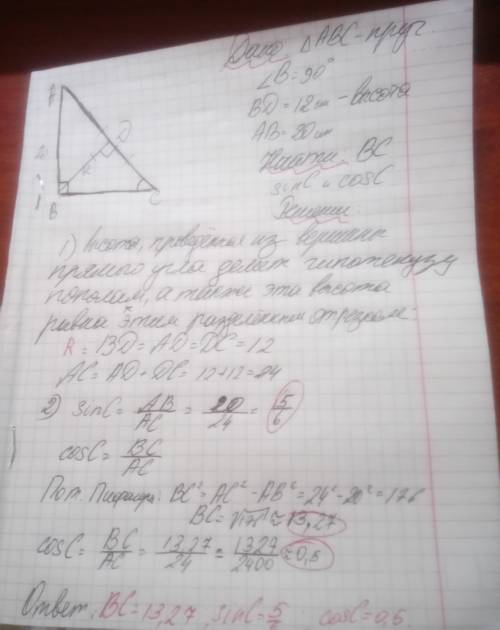 Дано: △ABC - пруг.
∠B = 90°
BD = 12 см - высота
AB = 20 см
Найти: BC
sinC и cosC
Решение:
A
20
D
12
B
C
1) Высота, проведённая из вершины
прямого угла делит гипотенузу
пополам, а также эта высота
равна этим разделённым отрезкам.
R = BD = AD = DC = 12
AC = AD + DC = 12+12=24
2) sinC = AB/AC = 20/24 = 5/6
cosC = BC/AC
По т. Пифагора: BC² = AC² - AB² = 24² - 20² = 176
BC = √176 ≈ 13,27
cosC = BC/AC = 13,27/24 = 1327/2400 ≈ 0,6
Ответ: BC = 13,27, sinC = 5/6 cosC = 0,6.